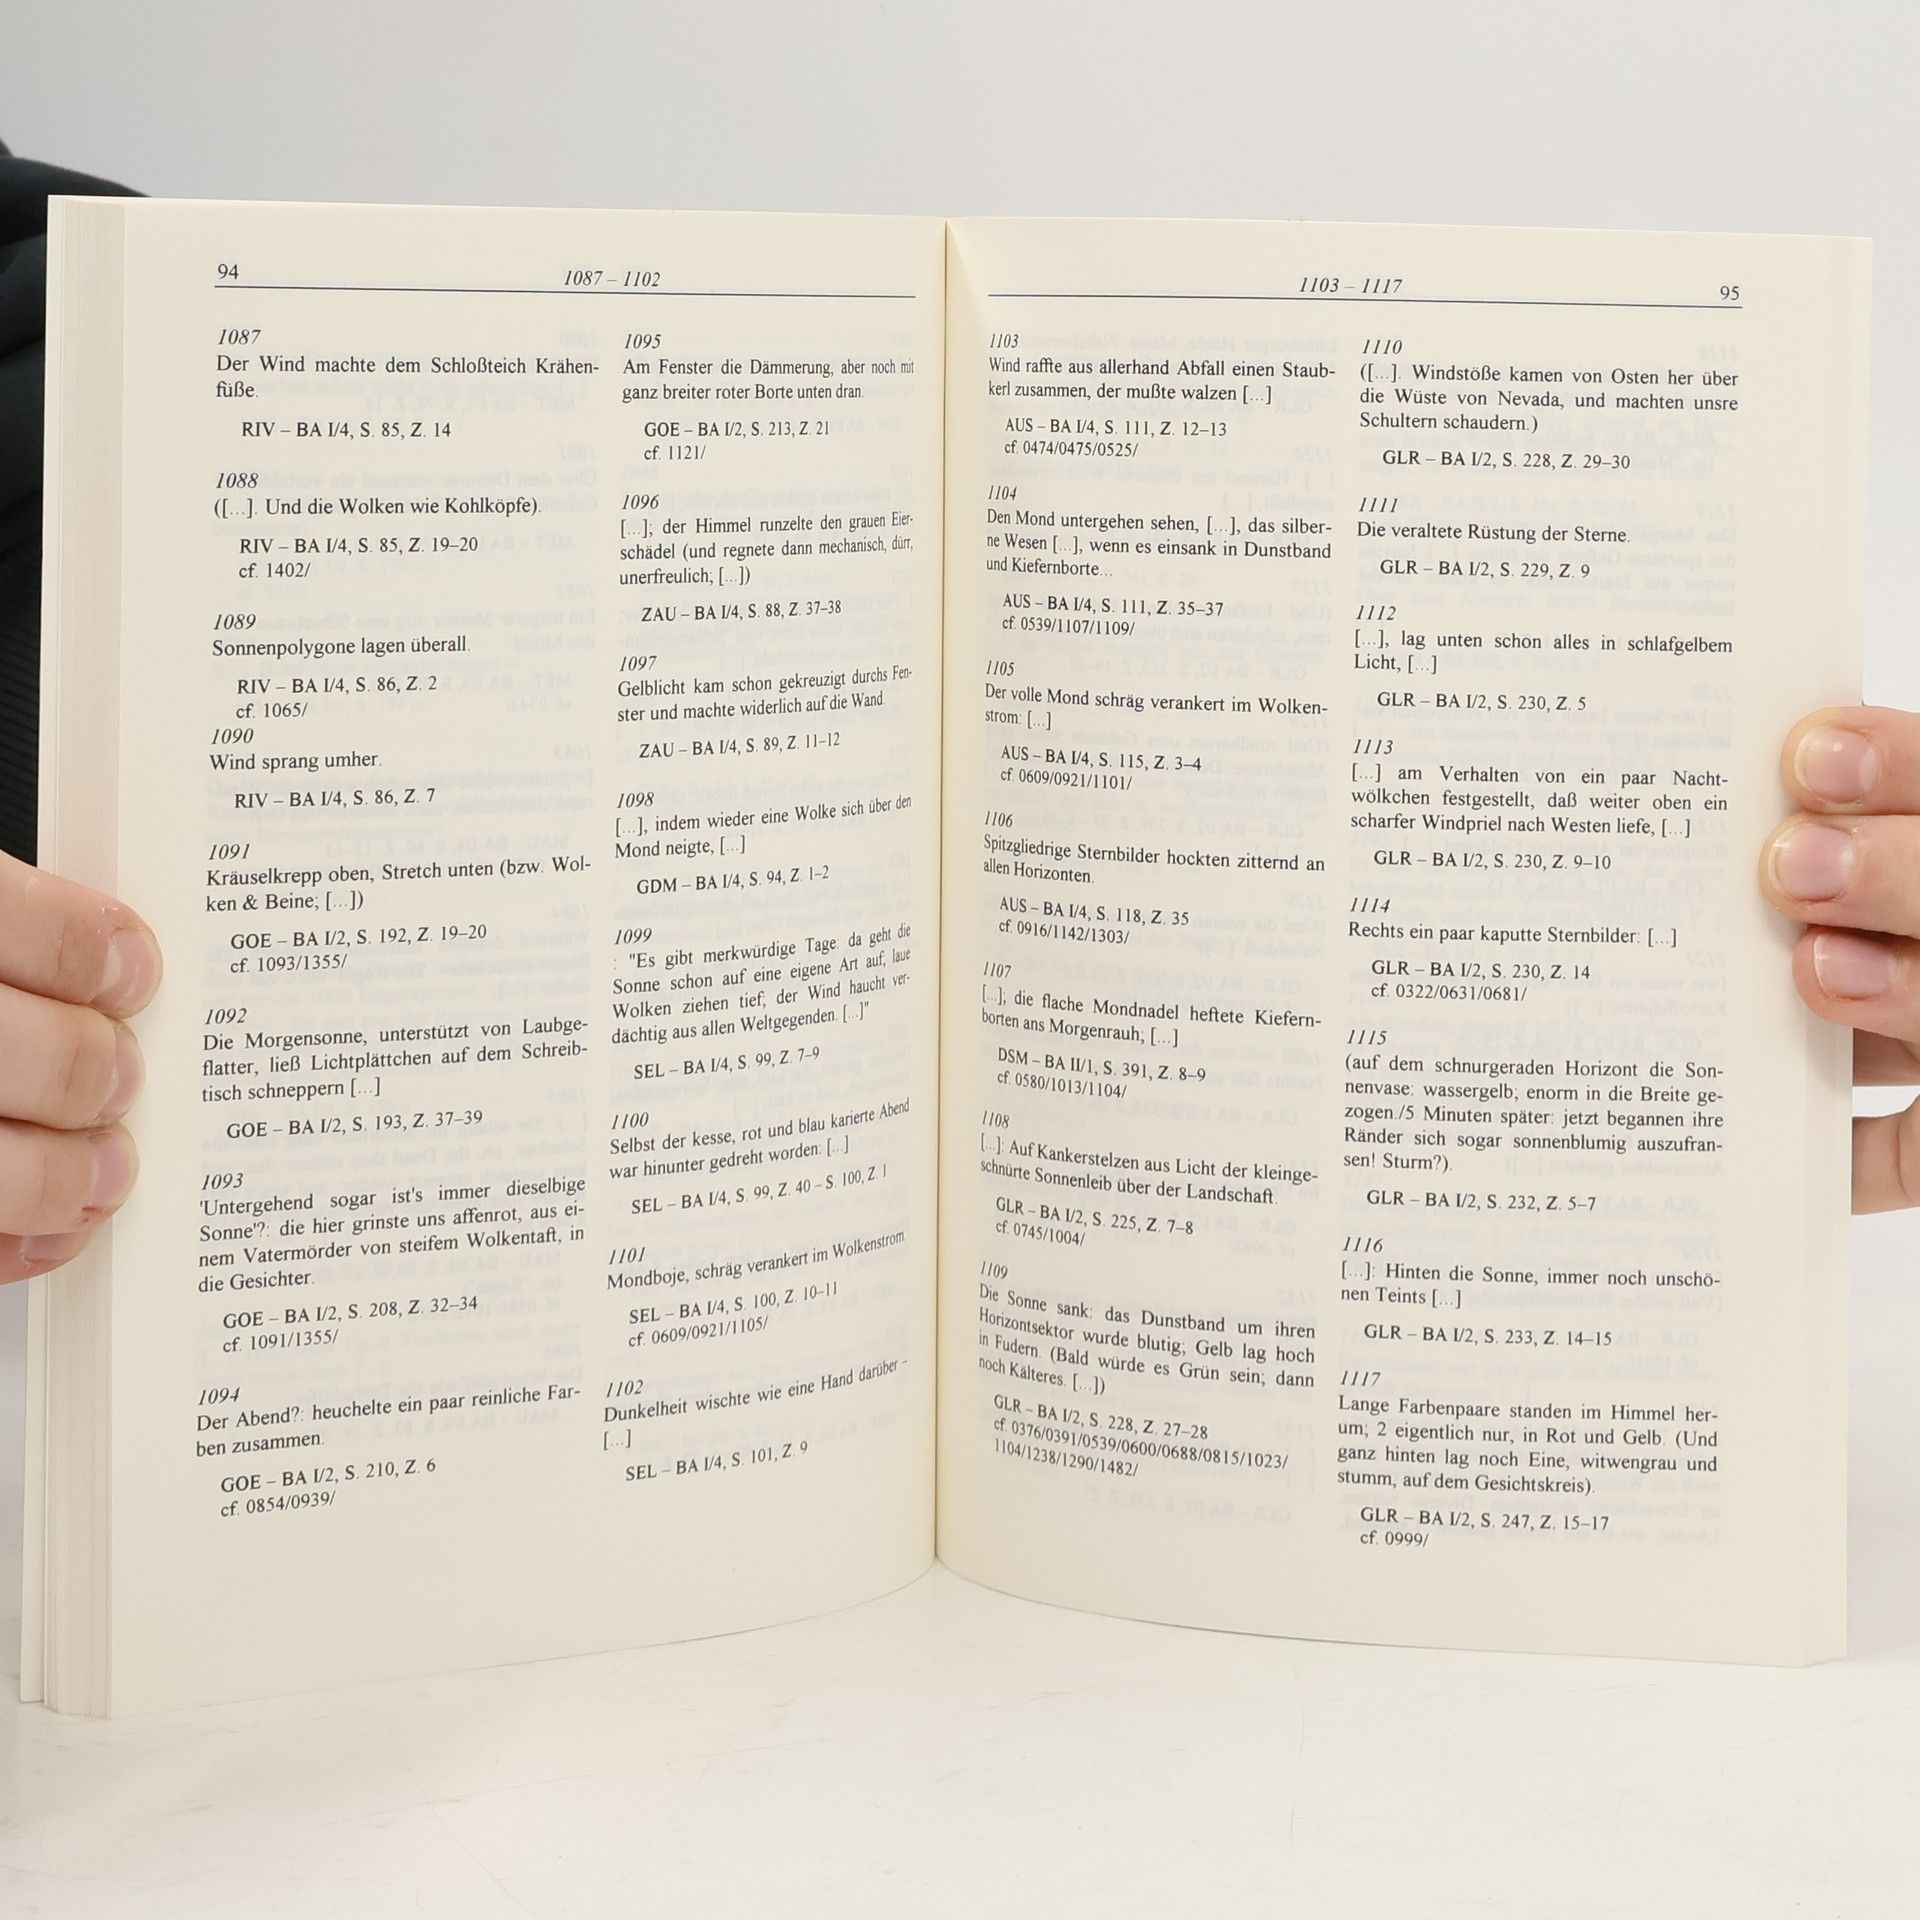 94
1087 – 1102
1087
Der Wind machte dem Schloßteich Krähen-
füße.
RIV – BA I/4, S. 85, Z. 14
1088
([...]. Und die Wolken wie Kohlköpfe).
RIV – BA I/4, S. 85, Z. 19–20
cf. 1402/
1089
Sonnenpolygone lagen überall.
RIV – BA I/4, S. 86, Z. 2
cf. 1065/
1090
Wind sprang umher.
RIV – BA I/4, S. 86, Z. 7
1091
Kräuselkrepp oben, Stretch unten (bzw. Wol-
ken & Beine; [...])
GOE – BA I/2, S. 192, Z. 19–20
cf. 1093/1355/
1092
Die Morgensonne, unterstützt von Laubge-
flatter, ließ Lichtplättchen auf dem Schreib-
tisch schneppern [...]
GOE – BA I/2, S. 193, Z. 37–39
1093
'Untergehend sogar ist's immer dieselbige
Sonne'?: die hier grinste uns affenrot, aus ei-
nem Vatermörder von steifem Wolkentaft, in
die Gesichter.
GOE – BA I/2, S. 208, Z. 32–34
cf. 1091/1355/
1094
Der Abend?: heuchelte ein paar reinliche Far-
ben zusammen.
GOE – BA I/2, S. 210, Z. 6
cf. 0854/0939/
1095
Am Fenster die Dämmerung, aber noch mit
ganz breiter roter Borte unten dran.
GOE – BA I/2, S. 213, Z. 21
cf. 1121/
1096
[...]; der Himmel runzelte den grauen Eier-
schädel (und regnete dann mechanisch, dürr,
unerfreulich; [...])
ZAU – BA I/4, S. 88, Z. 37–38
1097
Gelblicht kam schon gekreuzigt durchs Fen-
ster und machte widerlich auf die Wand.
ZAU – BA I/4, S. 89, Z. 11–12
1098
[...], indem wieder eine Wolke sich über den
Mond neigte, [...]
GDM – BA I/4, S. 94, Z. 1–2
1099
: "Es gibt merkwürdige Tage: da geht die
Sonne schon auf eine eigene Art auf; laue
Wolken ziehen tief; der Wind haucht ver-
dächtig aus allen Weltgegenden. [...]"
SEL – BA I/4, S. 99, Z. 7–9
1100
Selbst der kesse, rot und blau karierte Abend
war hinunter gedreht worden: [...]
SEL – BA I/4, S. 99, Z. 40 – S. 100, Z. 1
1101
Mondboje, schräg verankert im Wolkenstrom.
SEL – BA I/4, S. 100, Z. 10–11
cf. 0609/0921/1105/
1102
Dunkelheit wischte wie eine Hand darüber –
[...]
SEL – BA I/4, S. 101, Z. 9
1103 – 1117
95
1103
Wind raffte aus allerhand Abfall einen Staub-
kerl zusammen, der mußte walzen [...]
AUS – BA I/4, S. 111, Z. 12–13
cf. 0474/0475/0525/
1104
Den Mond untergehen sehen, [...], das silber-
ne Wesen [...], wenn es einsank in Dunstband
und Kiefernborte...
AUS – BA I/4, S. 111, Z. 35–37
cf. 0539/1107/1109/
1105
Der volle Mond schräg verankert im Wolken-
strom: [...]
AUS – BA I/4, S. 115, Z. 3–4
cf. 0609/0921/1101/
1106
Spitzgliedrige Sternbilder hockten zitternd an
allen Horizonten.
AUS – BA I/4, S. 118, Z. 35
cf. 0916/1142/1303/
1107
[...]; die flache Mondnadel heftete Kiefern-
borten ans Morgenrauh; [...]
DSM – BA II/1, S. 391, Z. 8–9
cf. 0580/1013/1104/
1108
[...]: Auf Kankerstelzen aus Licht der kleinge-
schnürte Sonnenleib über der Landschaft.
GLR – BA I/2, S. 225, Z. 7–8
cf. 0745/1004/
1109
Die Sonne sank: das Dunstband um ihren
Horizontsektor wurde blutig; Gelb lag hoch
in Fudern. (Bald würde es Grün sein; dann
noch Kälteres. [...])
GLR – BA I/2, S. 228, Z. 27–28
cf. 0376/0391/0539/0600/0688/0815/1023/
1104/1238/1290/1482/
1110
([...]. Windstöße kamen von Osten her über
die Wüste von Nevada, und machten unsre
Schultern schaudern.)
GLR – BA I/2, S. 228, Z. 29–30
1111
Die veraltete Rüstung der Sterne.
GLR – BA I/2, S. 229, Z. 9
1112
[...], lag unten schon alles in schlafgelbem
Licht, [...]
GLR – BA I/2, S. 230, Z. 5
1113
[...] am Verhalten von ein paar Nacht-
wölkchen festgestellt, daß weiter oben ein
scharfer Windpriel nach Westen liefe, [...]
GLR – BA I/2, S. 230, Z. 9–10
1114
Rechts ein paar kaputte Sternbilder: [...]
GLR – BA I/2, S. 230, Z. 14
cf. 0322/0631/0681/
1115
(auf dem schnurgeraden Horizont die Son-
nenvase: wassergelb; enorm in die Breite ge-
zogen./5 Minuten später: jetzt begannen ihre
Ränder sich sogar sonnenblumig auszufran-
sen! Sturm?).
GLR – BA I/2, S. 232, Z. 5–7
1116
[...]: Hinten die Sonne, immer noch unschö-
nen Teints [...]
GLR – BA I/2, S. 233, Z. 14–15
1117
Lange Farbenpaare standen im Himmel her-
um; 2 eigentlich nur, in Rot und Gelb. (Und
ganz hinten lag noch Eine, witwengrau und
stumm, auf dem Gesichtskreis).
GLR – BA I/2, S. 247, Z. 15–17
cf. 0999/